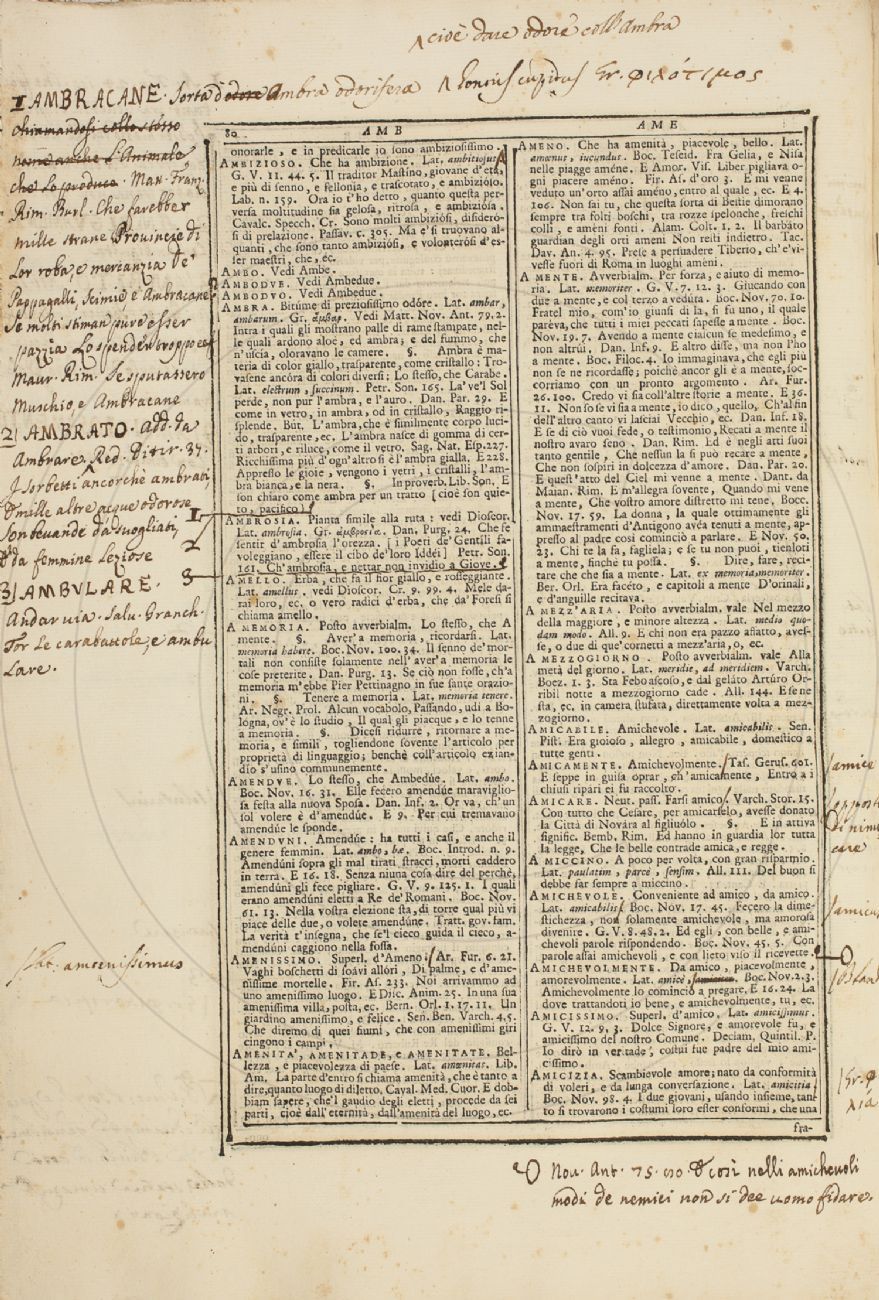 cioè dare odore coll'Ambra
Gr. φιλότιμος
1 AMBRACANE. Sorta d'odore Ambra odorifera
chiamandosi collo stesso
nome anche l'Animale,
che lo produce. Maur. Franz.
Rim. Burl. Che farebber
mille strane Provincie di
Lor roba, e mercanzia De'
Pappagalli, Scimie, e Ambracane
Se molti stiman pure esser
pazzia Lo spender troppo
Maur. Rim. Se sputassero
Muschio, e Ambracane
2 AMBRATO. Add. da
Ambrare. Red. Ditir. 37.
I Sorbetti ancorchè ambrati,
E mille altre acque odorose
Son bevande da svogliati,
E da femmine leziose
3 AMBULARE.
Andar via. Salv. Granch.
Tor le carabattole, e ambu
lare.
amœnissimus
80 AMB
onorarle, e in predicarle io sono ambiziosissimo.
AMBIZIOSO. Che ha ambizione. Lat. ambitiosus.
G. V. 11. 44. 5. Il traditor Mastino, giovane d'età,
e più di senno, e fellonia, e trascotato, e ambizioso.
Lab. n. 159. Ora io t'ho detto, quanto questa per-
versa moltitudine sia gelosa, ritrosa, e ambiziosa.
Cavalc. Specch. Cr. Sono molti ambiziósi, disiderò-
si di prelazione. Passav. c. 305. Ma e' si truovano al-
quanti, che sono tanto ambiziósi, e volonterósi d'es-
ser maestri, che, ec.
AMBO. Vedi Ambe.
AMBODUE. Vedi Ambedue.
AMBODUO. Vedi Ambedue.
AMBRA. Bitúme di preziosissimo odóre. Lat. ambar,
ambarum. Gr. ἄμβαρ. Vedi Matt. Nov. Ant. 79. 2.
Intra i quali gli mostrano palle di rame stampate, nel-
le quali ardono aloè, ed ambra; e del fummo, che
n'uscía, oloravano le camere. §. Ambra è ma-
teria di color giallo, trasparente, come cristallo: Tro-
vasene ancóra di colori diversi: Lo stesso, che Carabe.
Lat. electrum, succinum. Petr. Son. 165. La've'l Sol
perde, non pur l'ambra, e l'auro. Dan. Par. 29. E
come in vetro, in ambra, od in cristallo, Raggio ri-
splende. But. L'ambra, che è similmente corpo luci-
do, trasparente, ec. L'ambra nasce di gomma di cer-
ti arbori, e riluce, come il vetro. Sag. Nat. Esp. 227.
Ricchissima più d'ogn'altro si è l'ambra gialla. E 228.
Appresso le gioie, vengono i vetri, i cristalli, l'am-
bra bianca, e la nera. §. In proverb. Lib. Son. E
son chiaro come ambra per un tratto [cioè son quie-
to, pacifico]
AMBROSIA. Pianta simile alla ruta: vedi Dioscor.
Lat. ambrosia. Gr. ἀμβροσία. Dan. Purg. 24. Che fe
sentir d'ambrosia l'orezza. [i Poeti de' Gentili fa-
voleggiano, essere il cibo de'loro Iddei] Petr. Son.
161. Ch'ambrosia, e nettar non invidio a Giove.
AMELLO. Erba, che fa il fior giallo, e rosseggiante.
Lat. amellus. vedi Dioscor. Cr. 9. 99. 4. Mele da-
rai loro, ec. o vero radici d'erba, che da' Foresi si
chiama amello.
A MEMORIA. Posto avverbialm. Lo stesso, che A
mente. §. Aver'a memoria, ricordarsi. Lat.
memoria habere. Boc. Nov. 100. 34. Il senno de' mor-
tali non consiste solamente nell'aver'a memoria le
cose preterite. Dan. Purg. 13. Se ciò non fosse, ch'a
memoria m'ebbe Pier Pettinagno in sue sante orazio-
ni. §. Tenere a memoria. Lat. memoria tenere.
Ar. Negr. Prol. Alcun vocabolo, Passando, udì a Bo-
lógna, ov'è lo studio, Il qual gli piacque, e lo tenne
a memoria. §. Dicesi ridurre, ritornare a me-
moria, e simili, togliendone sovente l'articolo per
proprietà di linguaggio; benchè coll'articolo ezian-
dío s'usino comunemente.
AMENDUE. Lo stesso, che Ambedúe. Lat. ambo.
Boc. Nov. 16. 31. Elle fecero amendúe maraviglio-
sa festa alla nuova Sposa. Dan. Inf. 2. Or va, ch'un
sol volere è d'amendúe. E 9. Per cui tremavano
amendúe le sponde.
AMENDUNI. Amendúe: ha tutti i casi, e anche il
genere femmin. Lat. ambo, bæ. Boc. Introd. n. 9.
Amendúni sopra gli mal tirati stracci, morti caddero
in terra. E 16. 18. Senza niuna cosa dire del perchè,
amendúni gli fece pigliare. G. V. 9. 125. 1. I quali
erano amendúni eletti a Re de' Romani. Boc. Nov.
61. 13. Nella vostra elezione sta, di torre qual più vi
piace delle due, o volete amendúne. Tratt. gov. fam.
La verità t'insegna, che se'l cieco guida il cieco, a-
mendúni caggiono nella fossa.
AMENISSIMO. Superl. d'Ameno. Ar. Fur. 6. 21.
Vaghi boschetti di soávi allóri, Di palme, e d'ame-
nissime mortelle. Fir. As. 233. Noi arrivammo ad
uno amenissimo luogo. E Disc. Anim. 25. In una sua
amenissima villa, posta, ec. Bern. Orl. 1. 17. 11. Un
giardino amenissimo, e felice. Sen. Ben. Varch. 4. 5.
Che diremo di quei fiumi, che con amenissimi giri
cingono i campi,
AMENITA', AMENITADE, e AMENITATE. Bel-
lezza, e piacevolezza di paese. Lat. amœnitat. Lib.
Am. La parte d'entro si chiama amenità, che è tanto a
dire, quanto luogo di diletto. Caval. Med. Cuor. E dob-
biam sapere, che'l gaudio degli eletti, procede da sei
parti, cioè dall'eternità, dall'amenità del luogo, ec.
AME
AMENO. Che ha amenità, piacevole, bello. Lat.
amœnus, iucundus. Boc. Teseid. Fra Gelia, e Nisa
nelle piagge améne. E Amor. Vis. Liber pigliava o-
gni piacere améno. Fir. As. d'oro 3. E mi venne
veduto un'orto assai améno, entro al quale, ec. E 4.
106. Non sai tu, che questa sorta di Bestie dimorano
sempre tra folti boschi, tra rozze spelonche, freschi
colli, e améni fonti. Alam. Colt. 1. 2. Il barbáto
guardian degli orti ameni Non resti indietro. Tac.
Dav. An. 4. 95. Prese a persuadere Tiberio, ch'e'vi-
vesse fuori di Roma in luoghi améni.
A MENTE. Avverbialm. Per forza, e aiuto di memo-
ria. Lat. memoriter. G. V. 7. 12. 3. Giucando con
due a mente, e col terzo a vedúta. Boc. Nov. 70. 10.
Fratel mio, com'io giunsi di la, si fu uno, il quale
parèva, che tutti i miei peccati sapesse a mente. Boc.
Nov. 19. 7. Avendo a mente ciascun se medesimo, e
non altrui. Dan. Inf. 9. E altro disse, ma non l'ho
a mente. Boc. Filoc. 4. Io immaginava, che egli più
non se ne ricordasse; poichè ancor gli è a mente, soc-
corriamo con un pronto argomento. Ar. Fur.
26. 100. Credo vi sia coll'altre storie a mente. E 36.
11. Non so se vi sia a mente, io dico, quello, Ch'al fin
dell'altro canto vi lasciai Vecchio, ec. Dan. Inf. 18.
E se di ciò vuoi fede, o testimonio, Recati a mente il
nostro avaro seno. Dan. Rim. Ed è negli atti suoi
tanto gentile, Che nessun la si può recáre a mente,
Che non sospiri in dolcezza d'amore. Dan. Par. 20.
E quest'atto del Ciel mi venne a mente. Dant. da
Maian. Rim. E m'allegra sovente, Quando mi vene
a mente, Che vostro amore distretto mi tene, Bocc.
Nov. 17. 59. La donna, la quale ottimamente gli
ammaestramenti d'Antigono avéa tenuti a mente, ap-
presso al padre così cominciò a parlare. E Nov. 50.
23. Chi te la fa, fagliela; e se tu non puoi, tienloti
a mente, finchè tu possa. §. Dire, fare, reci-
tare che che sia a mente. Lat. ex memoria, memoriter.
Ber. Orl. Era facéto, e capitoli a mente D'orinali,
e d'anguille recitava.
A MEZZ'ARIA. Posto avverbialm. vale Nel mezzo
della maggiore, e minore altezza. Lat. medio quo-
dam modo. All. 9. E chi non era pazzo affatto, aves-
se, o due di que' cornetti a mezz'aria, o, ec.
A MEZZOGIORNO. Posto avverbialm. vale Alla
metà del giorno. Lat. meridie, ad meridiem. Varch.
Boez. 1. 3. Sta Febo ascoso, e dal geláto Artúro Or-
ribil notte a mezzogiorno cade. All. 144. E se ne
sta, ec. in camera stufata, direttamente volta a mez-
zogiorno.
AMICABILE. Amichevole. Lat. amicabilis. Sen.
Pist. Era gioioso, allegro, amicabile, domestico a
tutte genti.
AMICAMENTE. Amichevolmente. Tas. Gerus. 601.
E seppe in guisa oprar, ch'amicamente, Entro a i
chiusi ripári ei fu raccolto.
AMICARE. Neut. pass. Farsi amico. Varch. Stor. 15.
Con tutto che Cesare, per amicarselo, avesse donato
la Città di Novára al figliuólo. §. E in attiva
signific. Bemb. Rim. Ed hanno in guardia lor tutta
la legge, Che le belle contrade amica, e regge.
A MICCINO. A poco per volta, con gran risparmio.
Lat. paulatim, parcè, sensim. All. 111. Del buon si
debbe far sempre a miccino.
AMICHEVOLE. Conveniente ad amico, da amico.
Lat. amicabilis. Boc. Nov. 17. 45. Fecero la dime-
stichezza, non solamente amichevole, ma amorosa
divenire. G. V. 8. 48. 2. Ed egli, con belle, e ami-
chevoli parole rispondendo. Boc. Nov. 45. 5. Con
parole assai amichevoli, e con lieto viso il ricevette.
AMICHEVOLMENTE. Da amico, piacevolmente,
amorevolmente. Lat. amicè, Boc. Nov. 2. 3.
Amichevolmente lo cominciò a pregare. E 16. 24. La
dove trattandoti io bene, e amichevolmente, tu, ec.
AMICISSIMO. Superl. d'amico, Lat. amicissimus.
G. V. 12. 9. 3. Dolce Signore, e amorevole fu, e
amicissimo del nostro Comune. Declam. Quintil. P.
Io dirò in vertade, costui fue padre del mio ami-
cissimo.
AMICIZIA. Scambievole amore; nato da conformità
di voleri, e da lunga conversazione. Lat. amicitia
Boc. Nov. 98. 4. I due giovani, usando insieme, tan-
to si trovarono i costumi loro esser conformi, che una
fra-
amice
amicus
Gr. φ
λια
Nov. Ant. 75. no. E così nelli amichevoli
modi de nemici non si dee uomo fidare.